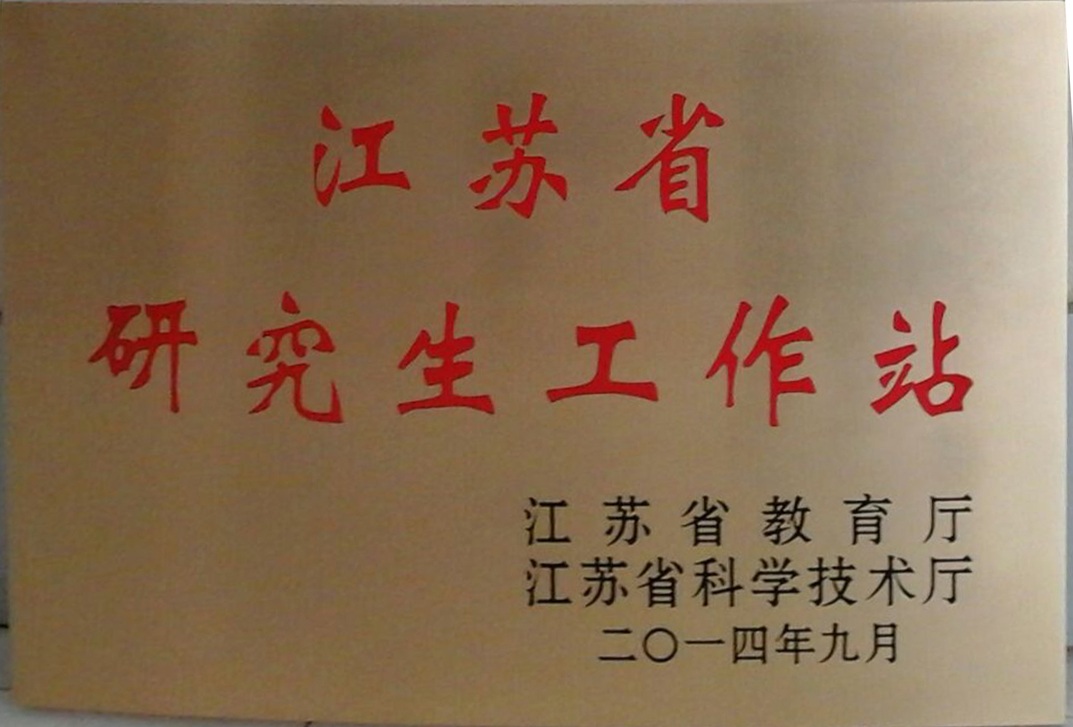 江苏省
研究生工作站
江苏省教育厅
江苏省科学技术厅
二〇一四年九月